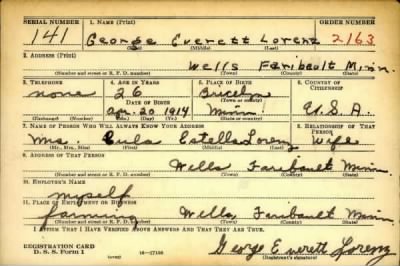 SERIAL NUMBER 1. NAME (Print) ORDER NUMBER
141 George Everett Lorenz 2163
(First) (Middle) (Last)
2. ADDRESS (Print)
Wells Faribault Minn.
(Number and street or R. F. D. number) (Town) (County) (State)
3. TELEPHONE 4. AGE IN YEARS 5. PLACE OF BIRTH 6. COUNTRY OF CITIZENSHIP
none 26 Bricelyn
DATE OF BIRTH (Town or county)
Apr. 20 1914 Minn. U.S.A.
(Exchange) (Number) (Mo.) (Day) (Yr.) (State or country)
7. NAME OF PERSON WHO WILL ALWAYS KNOW YOUR ADDRESS 8. RELATIONSHIP OF THAT PERSON
Mrs. Estella Lorenz wife
(Mr., Mrs., Miss) (First) (Middle) (Last)
9. ADDRESS OF THAT PERSON
Wells Faribault Minn
(Number and street or R. F. D. number) (Town) (County) (State)
10. EMPLOYER'S NAME
myself
11. PLACE OF EMPLOYMENT OR BUSINESS
farming Wells Faribault Minn
(Number and street or R. F. D. number) (Town) (County) (State)
I AFFIRM THAT I HAVE VERIFIED ABOVE ANSWERS AND THAT THEY ARE TRUE.
REGISTRATION CARD
D. S. S. FORM 1 16-17105 George Everett Lorenz
(over) (Registrant's signature)